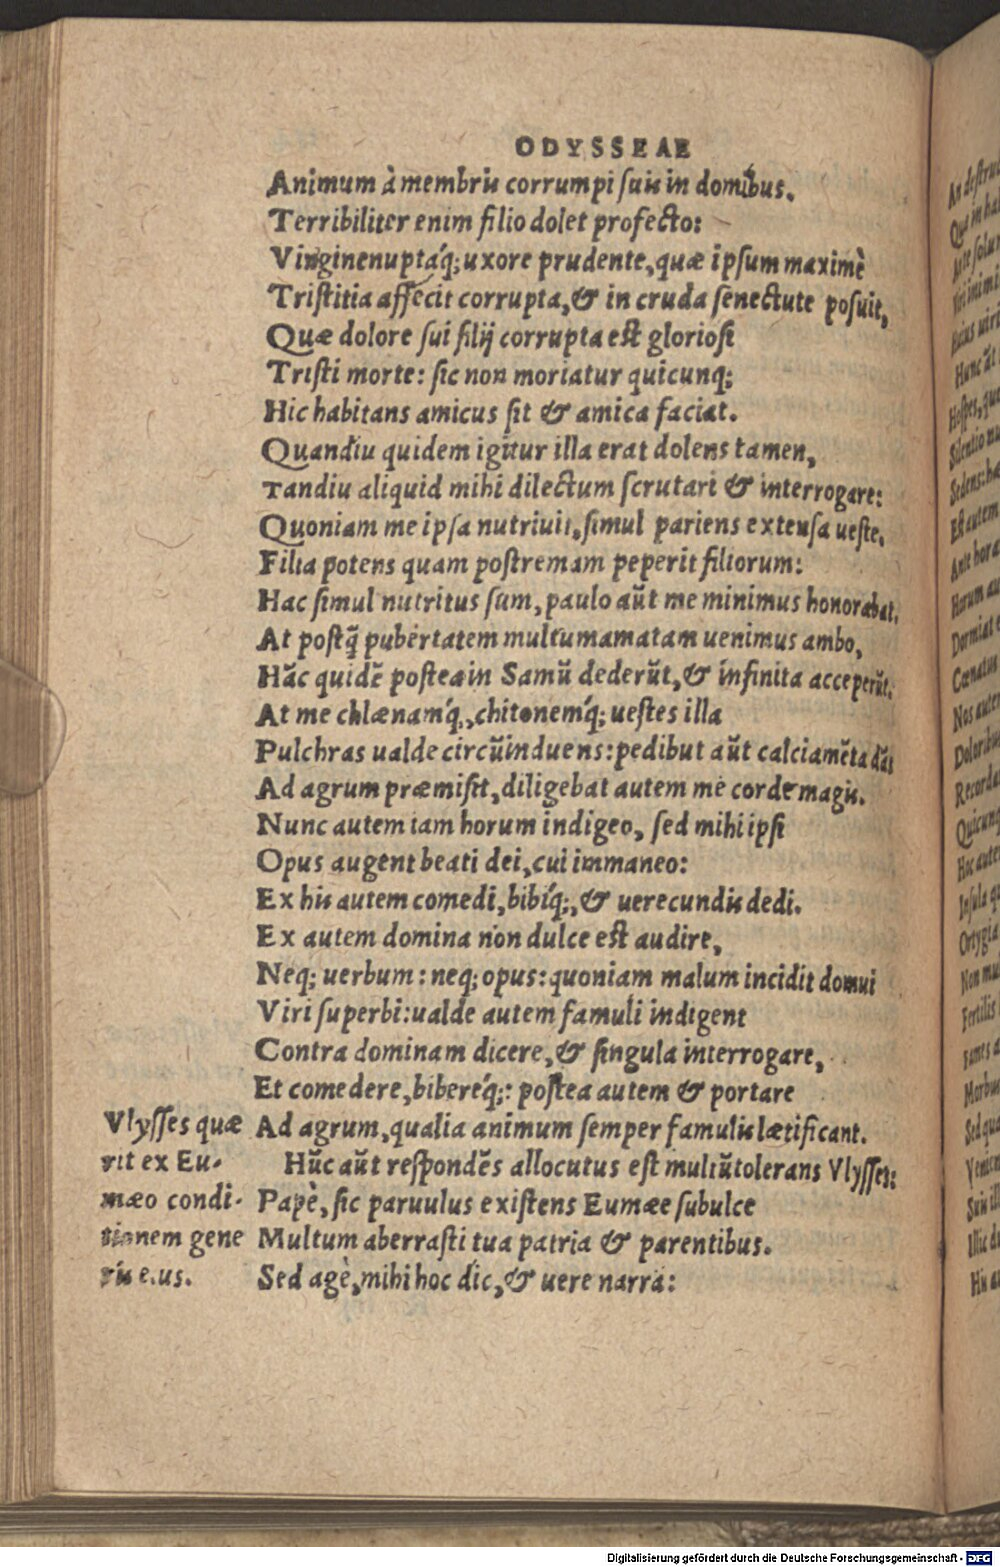 ODYSSEAE
Animum à membris corrumpi suis in domibus.
Terribiliter enim filio dolet profecto:
Virginenuptáq; uxore prudente, quæ ipsum maximè
Tristitia affecit corrupta, & in cruda senectute posuit,
Quæ dolore sui filij corrupta est gloriosi
Tristi morte: sic non moriatur quicunq;
Hic habitans amicus sit & amica faciat.
Quandiu quidem igitur illa erat dolens tamen,
Tandiu aliquid mihi dilectum scrutari & interrogare:
Quoniam me ipsa nutriuit, simul pariens extensa ueste,
Filia potens quam postremam peperit filiorum:
Hac simul nutritus sum, paulo aũt me minimus honorabat.
At postq̃ pubertatem multum amatam uenimus ambo,
Hãc quidẽ postea in Samũ dederũt, & infinita acceperũt.
At me chlænamq́, chitonemq́; uestes illa
Pulchras ualde circũinduens: pedibut aũt calciamẽta dãs
Ad agrum præmisit, diligebat autem me corde magis.
Nunc autem iam horum indigeo, sed mihi ipsi
Opus augent beati dei, cui immaneo:
Ex his autem comedi, bibiq́;, & uerecundis dedi.
Ex autem domina non dulce est audire,
Neq; uerbum: neq; opus: quoniam malum incidit domui
Viri superbi: ualde autem famuli indigent
Contra dominam dicere, & singula interrogare,
Et comedere, bibereq́;: postea autem & portare
Ad agrum, qualia animum semper famulis lætificant.
Hũc aũt respondẽs allocutus est multũ tolerans Vlysses:
Papè, sic paruulus existens Eumæe subulce
Multum aberrasti tua patria & parentibus.
Sed agè, mihi hoc dic, & uere narra:
Vlysses quæ
rit ex Eu-
mæo condi-
tionem gene
ris eius.
An destru
Qua in hab
Viri inimi
Huius uiri
Hunc aũt
Hospes, qu
Silentio
Sedens: hæ
Est autem
Ante hora
Horum au
Dormiat
Cœnatus
Nos autem
Doloribus
Recorda
Quicunq
Hoc autem
Insula q
Ortygia
Non mu
Fertilis
Fames a
Morbus
Sed qua
Suis ill
Illic d
His au
Digitalisierung gefördert durch die Deutsche Forschungsgemeinschaft - DFG